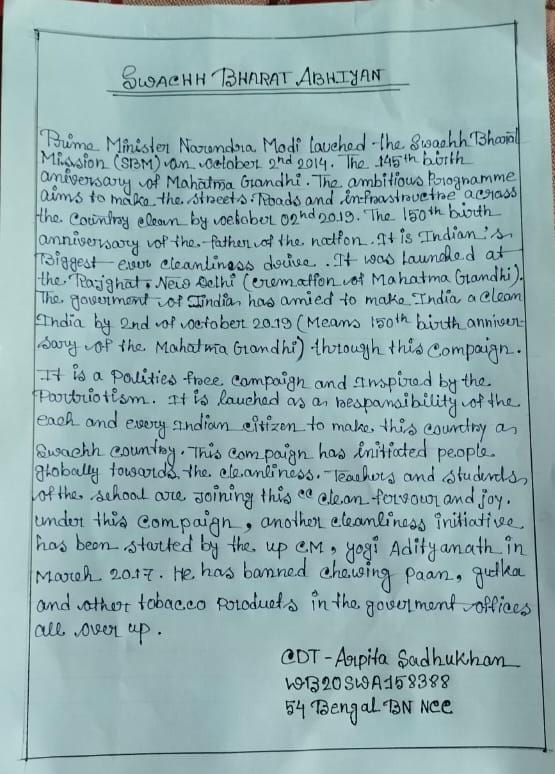 SWACHH BHARAT ABHIYAN
Prime Minister Narendra Modi lauched the Swachh Bharat
Mission (SBM) on october 2nd 2014. The 145th birth
aniversary of Mahatma Grandhi. The ambitious Programme
aims to make the streets, Roads and infrastructre across
the country clean by october 02nd 2019. The 150th birth
anniversary of the father of the nation. It is Indian's
Biggest ever cleanliness drive. It was Launched at
the Rajghat, New Delhi (cremation of Mahatma Grandhi).
The goverment of India has amied to make India a clean
India by 2nd of october 2019 (Means 150th birth anniver-
sary of the Mahatma Grandhi) through this Compaign.
It is a Polities free campaign and Inspired by the
Partriotism. It is lauched as a responsibility of the
each and every Indian citizen to make this country a
Swachh country. This compaign has initiated people
globally towards the cleanliness. Teachers and students
of the school are joining this " clean fervour and joy.
under this compaign, another cleanliness initiative
has been started by the up CM, yogi Adityanath in
March 2017. He has banned chewing Paan, gutka
and other tobacco Products in the goverment offices
all over up.
CDT - Arpita Sadhukhan
WB20SWA158388
54 Bengal BN NCC